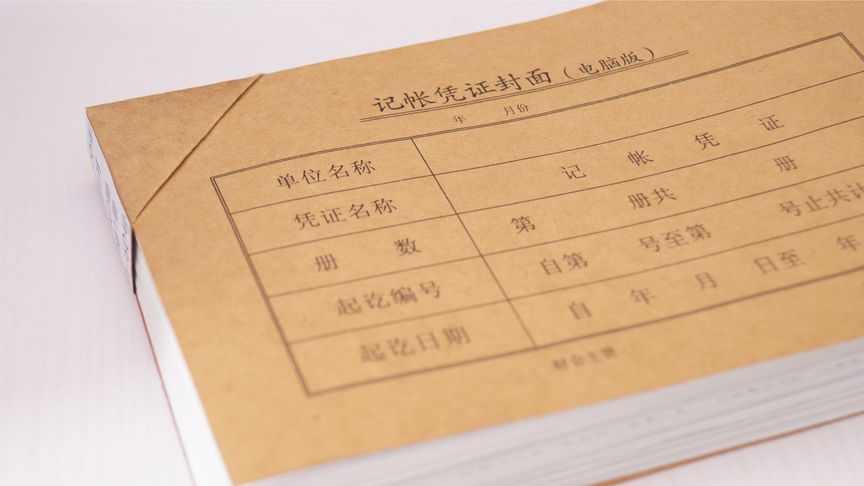 记帐凭证封面（电脑版）
年 月份
单位名称
凭证名称 记帐凭证
册数 第 册共 册
起讫编号 自第 号至第 号止共计
起讫日期 自 年 月 日至 年
财会主管